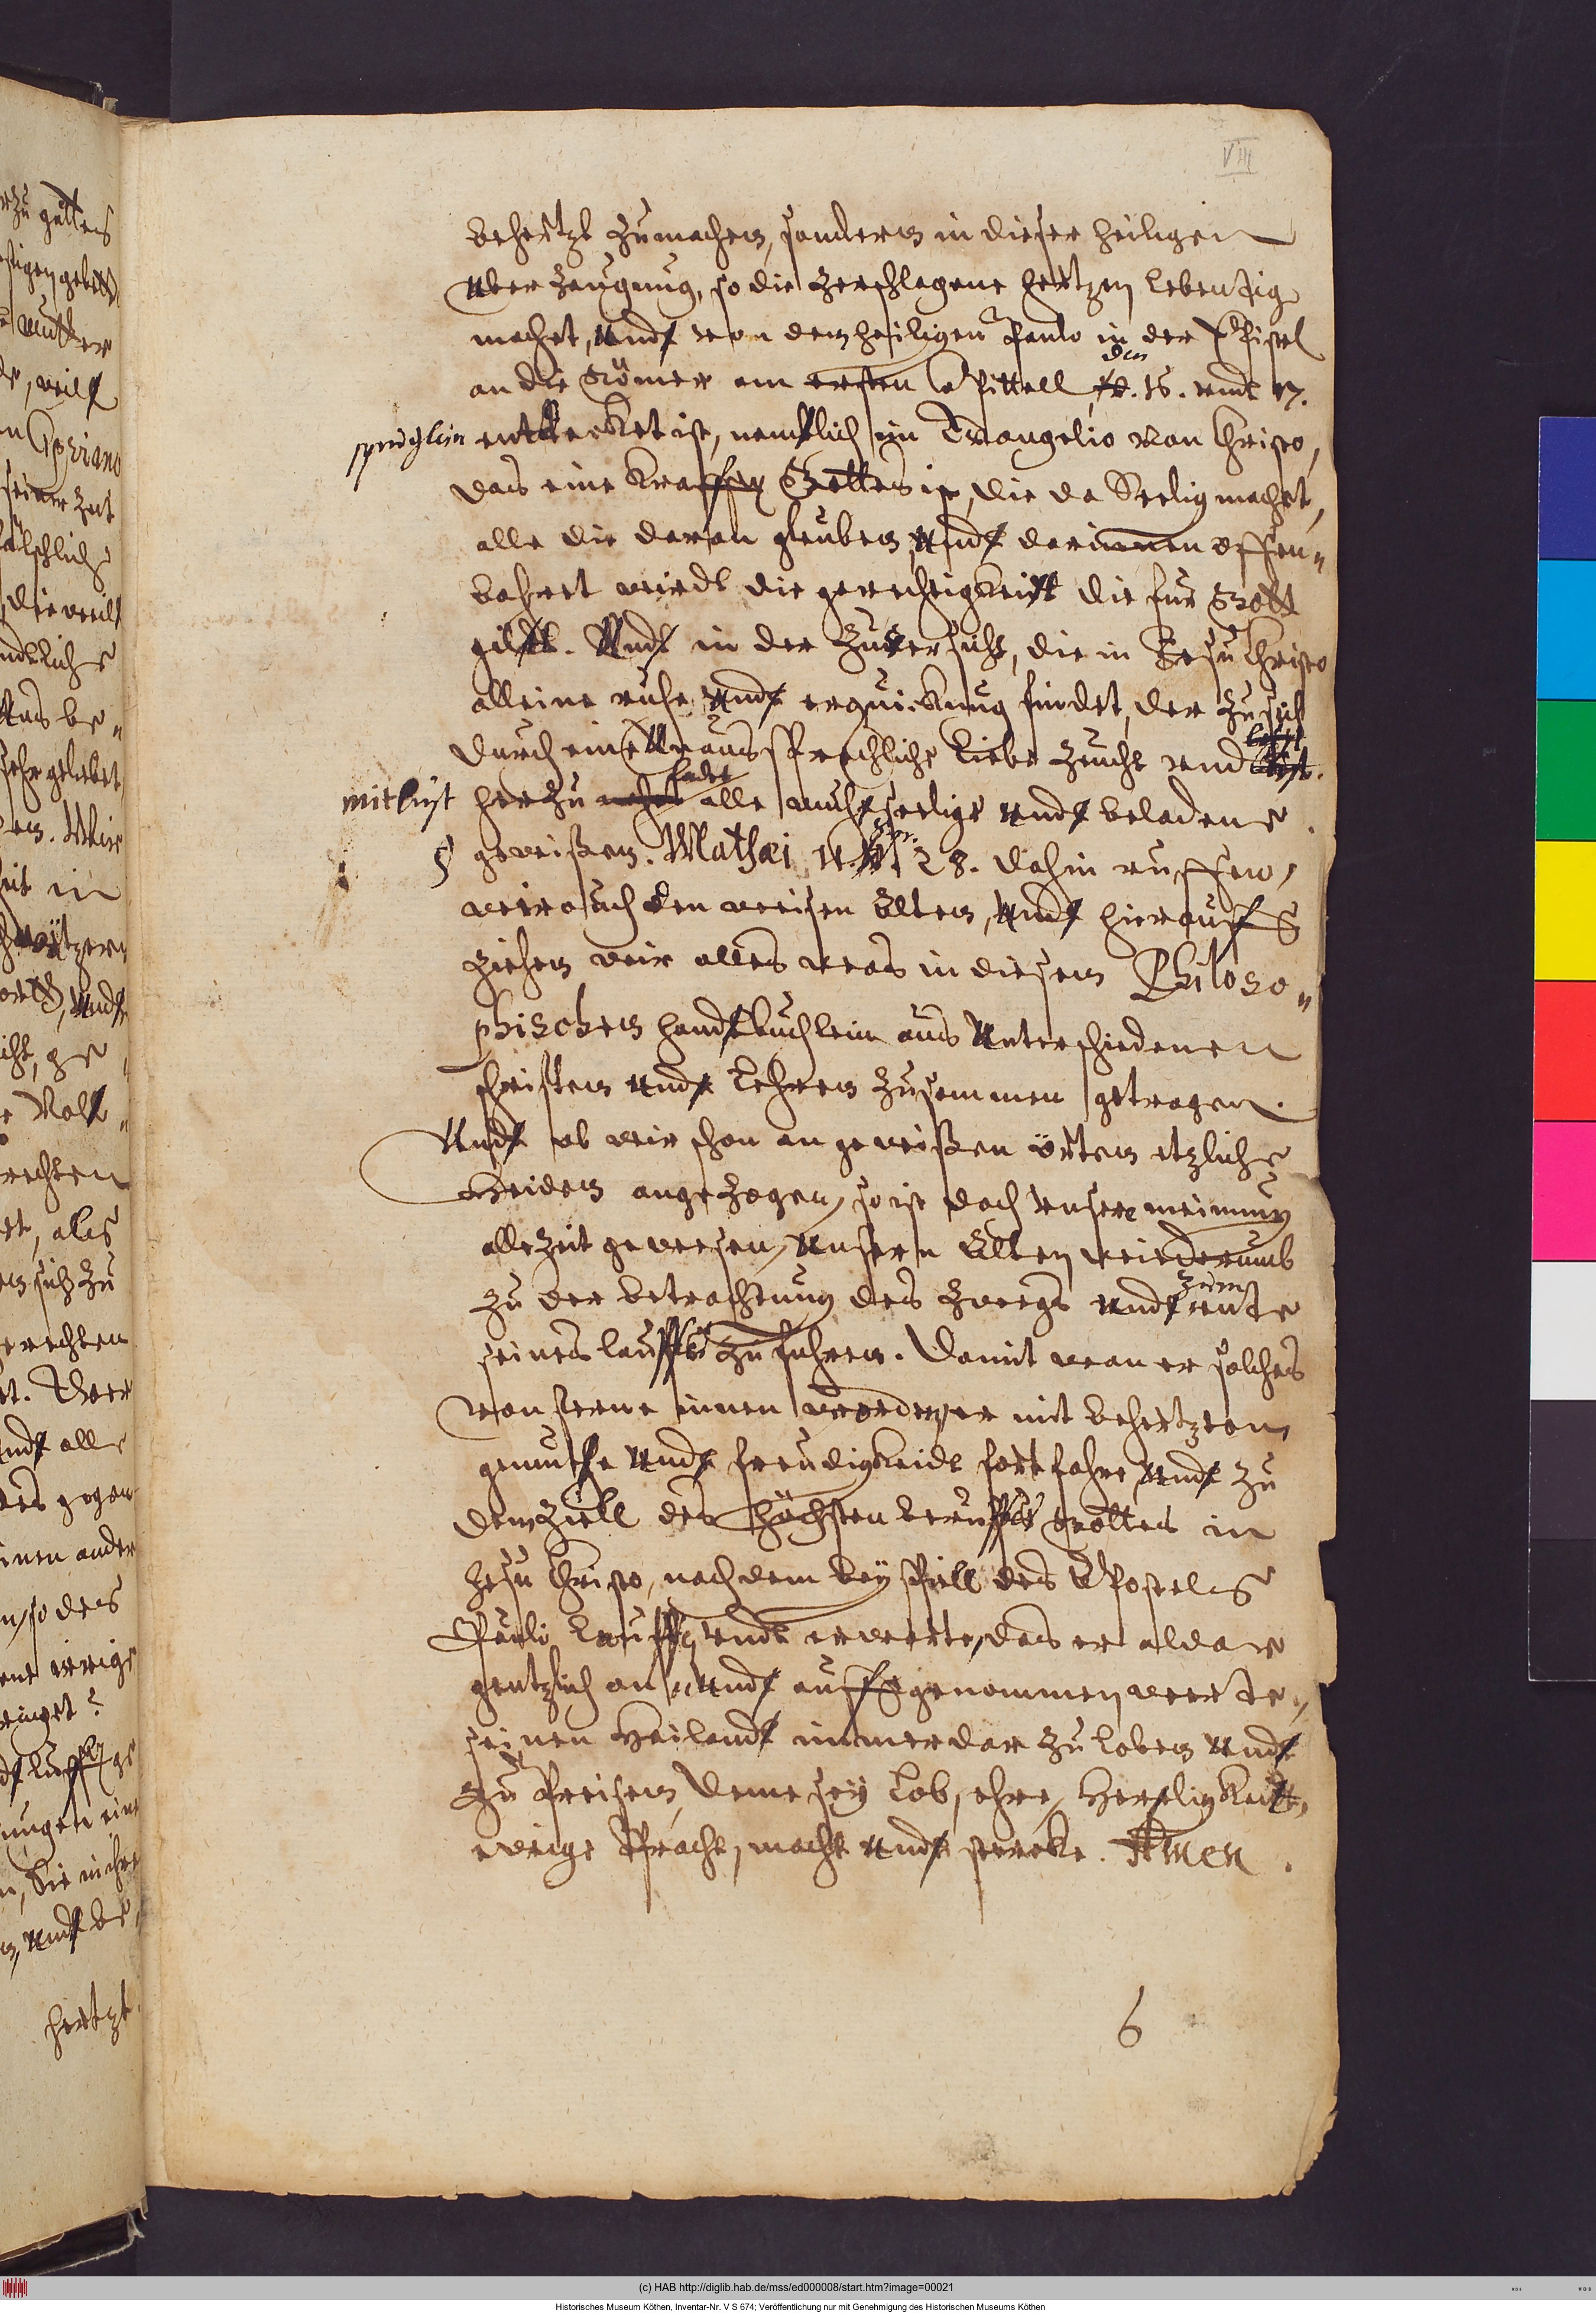 VIII
behertzt zumachen, sondern in dieser heiligen
Uberzeugung, so die zerschlagene hertzen lebendig
machet, Undt von dem heiligen Paulo in der Epistel
an die Römer am ersten Capittell, den 16. undt 17.
sprüchlein entdecket ist, nemblich im Evangelio von Christo,
das eine Krafft Gottes ist, die da Seelig machet,
alle die daran gleuben, Undt darinnen offen„
bahret wirdt die gerechtigkeitt die fur Gott
giltt. Undt in der Zuversicht, die in Jesu Christo
alleine ruhe Undt erquickung findet, der zu sich
durch eine Unaussprechliche Liebe zeucht undt
mit lust herzu ladet alle muhseelige Undt beladene
gewißen. Mathæi 11. 28. dahin ruffen
wir auch den weisen Alten, Undt hierauff
ziehen wir alles was in diesem Philoso„
phischen handtbuchlein aus Unterschiedenen
schriften Undt Lehren zusammen getragen.
Undt ob wir schon an gewißen örten etzliche
Heiden angezogen, so ist doch unsere meinung
allezeit gewesen, Unsern Alten wiederumb
zu der betrachtung des zwegks Undt zum ente
seines lauffes zu fuhren. Damit wan er solches
von ferne innen worden, er mit behertztem
gemuthe Undt freudigkeidt fortfahre, Undt zu
dem Ziell des höchsten beruffes Gottes in
Jesu Christo, nach dem beyspiell des Apostels
Pauli lauffe, Undt erwarte, das er aldar
gentzlich an„ Undt auffgenommen werde,
seinen Heilandt immerdar zu loben Undt
zu Preisen, deme sey Lob, ehre, Herrligkeitt,
ewige Pracht, macht Undt stercke. Amen.
6
hertzt
(c) HAB http://diglib.hab.de/mss/ed000008/start.htm?image=00021
Historisches Museum Köthen, Inventar-Nr. V S 674; Veröffentlichung nur mit Genehmigung des Historischen Museums Köthen